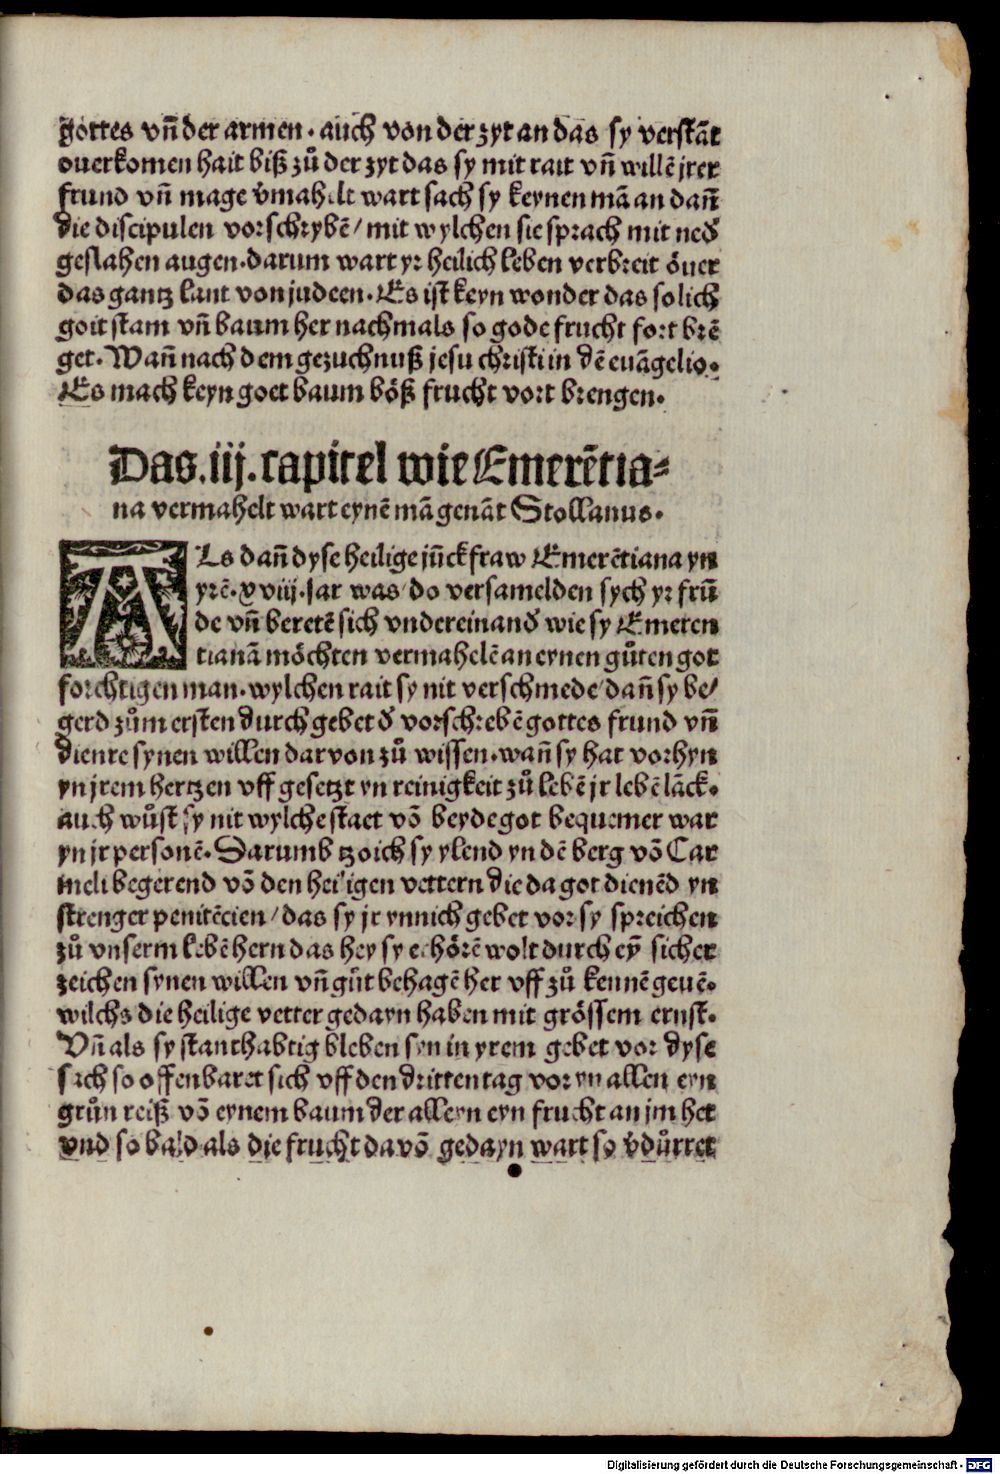 gottes vn̄ der armen. auch von der zyt an das sy verstāt
ouerkomen hait biß zů der zyt das sy mit rait vn̄ willē jrer
frund vn̄ mage v̄mahelt wart sach sy keynen mā an dan̄
die discipulen vorschrybē / mit wylchen sie sprach mit neđ
geslahen augen. darum wart yr heilich leben verbreit öuer
das gantz lant von judeen. Es ist keyn wonder das solich
goit stam vn̄ baum her nachmals so gode frucht fort brē
get. Wan̄ nach dem gezuchnuß jesu christi in dē euāgelio.
Es mach keyn goet baum böß frucht vort brengen.
Das .iij. capitel wie Emerētia-
na vermahelt wart eynē mā genāt Stollanus.
ALs dan̄ dyse heilige jūckfraw Emerētiana yn
yrē. xviij. Jar was / do versamelden sych yr frū
de vn̄ beretē sich vndereinanđ wie sy Emeren
tianā möchten vermahelē an eynen gůten got
forchtigen man. wylchen rait sy nit verschmede / dan̄ sy be/
gerd zům ersten durch gebet đ vorschrebē gottes frund vn̄
dienre synen willen dar von zů wissen. wan̄ sy hat vorhyn
yn jrem hertzen vff gesetzt yn reinigkeit zů lebē jr lebē lāck.
auch wůst sy nit wylche staet vō beyde got bequemer war
yn jr personē. Darumb tzoich sy ylend yn dē berg vō Car
meli begerend vō den heiligen vettern die da got dienēd yn
strenger penitēcien / das sy jr ynnich gebet vor sy spreichen
zů vnserm liebē hern das hey sy erhörē wolt durch eȳ sicher
zeichen synen willen vn̄ gůt behagē her vff zů kennē geuē.
wilchs die heilige vetter gedayn haben mit grössem ernst.
Vn̄ als sy stanthabtig bleben syn in yrem gebet vor dyse
sach so offenbaret sich vff den dritten tag vor yn allen eyn
grůn reiß vō eynem baum der alleyn eyn frucht an jm het
vnd so bald als die frucht da vō gedayn wart so v̄důrret
Digitalisierung gefördert durch die Deutsche Forschungsgemeinschaft - DFG